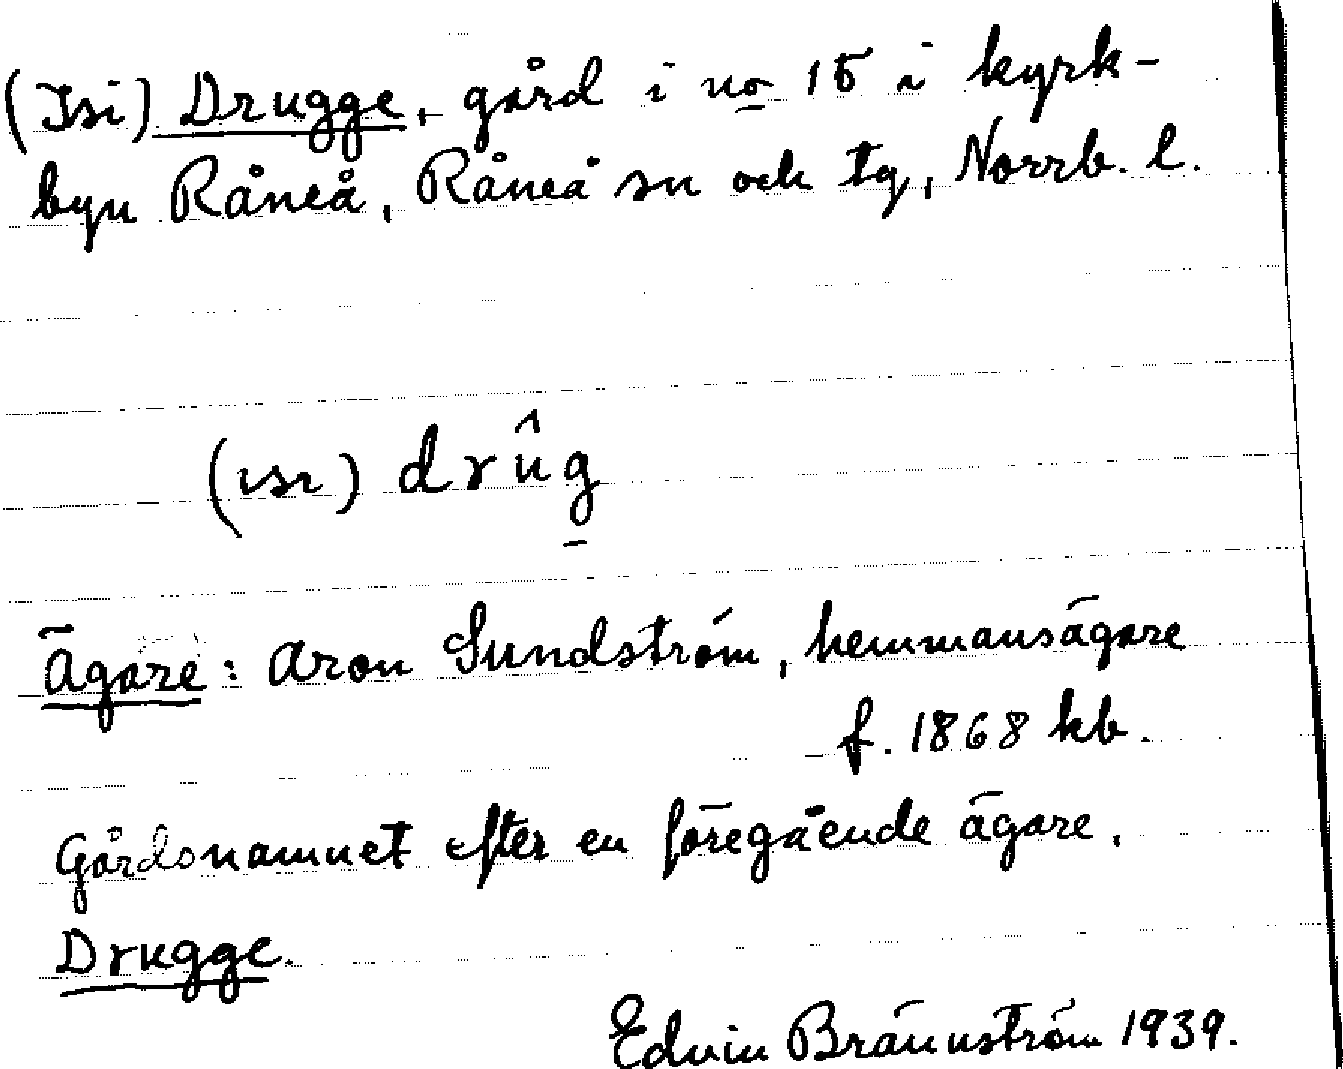 (Isi) Drugge, gård i no 15 i kyrk-
byn Råneå, Råneå sn och tg, Norrb. l.
(ısı) drûg
Ägare: Aron Sundström, hemmansägare
f. 1868 kb.
Gårdsnamnet efter en föregående ägare,
Drugge.
Edvin Brännström 1939.